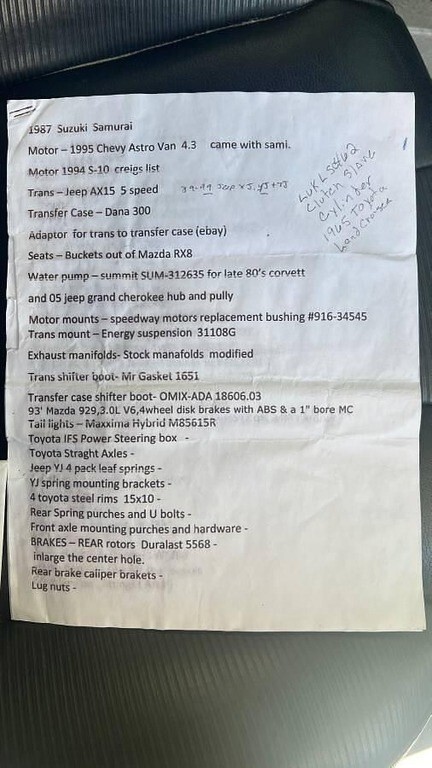 1987 Suzuki Samurai
Motor – 1995 Chevy Astro Van 4.3 came with sami.
Motor 1994 S-10 creigs list
Trans – Jeep AX15 5 speed
Transfer Case – Dana 300
Adaptor for trans to transfer case (ebay)
Seats – Buckets out of Mazda RX8
Water pump – summit SUM-312635 for late 80's corvett
and 05 jeep grand cherokee hub and pully
Motor mounts – speedway motors replacement bushing #916-34545
Trans mount – Energy suspension 31108G
Exhaust manifolds- Stock manafolds modified
Trans shifter boot- Mr Gasket 1651
Transfer case shifter boot- OMIX-ADA 18606.03
93' Mazda 929,3.0L V6,4wheel disk brakes with ABS & a 1" bore MC
Tail lights – Maxxima Hybrid M85615R
Toyota IFS Power Steering box -
Toyota Straght Axles -
Jeep YJ 4 pack leaf springs -
YJ spring mounting brackets -
4 toyota steel rims 15x10 -
Rear Spring purches and U bolts -
Front axle mounting purches and hardware -
BRAKES – REAR rotors Duralast 5568 -
inlarge the center hole.
Rear brake caliper brakets -
Lug nuts -
Clutch Slave
Cylinder
1965 Toyota
Land Cruiser